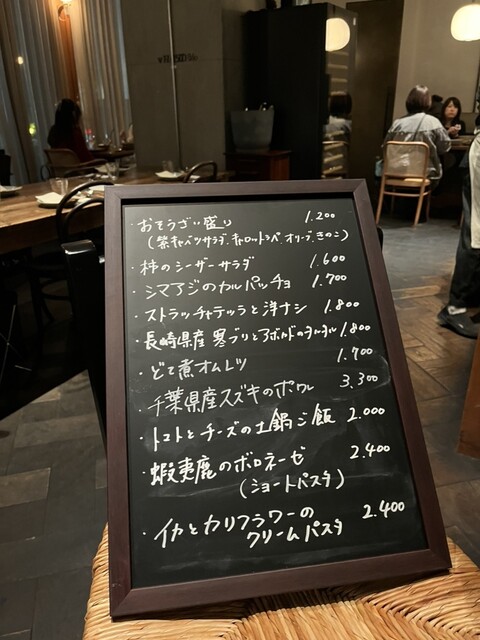 ・おそうざい盛り 1.200
(紫キャベツサラダ、キャロットラペ、オリーブ、きのこ)
・柿のシーザーサラダ 1.600
・シマアジのカルパッチョ 1.700
・ストラッチャテッラと洋ナシ 1.800
・長崎県産 寒ブリとアボカドのタルタル 1.800
・どて煮オムレツ 1.700
・千葉県産スズキのポワレ 3.300
・トマトとチーズの土鍋ご飯 2.000
・蝦夷鹿のボロネーゼ 2.400
(ショートパスタ)
・イカとカリフラワーの 2.400
クリームパスタ